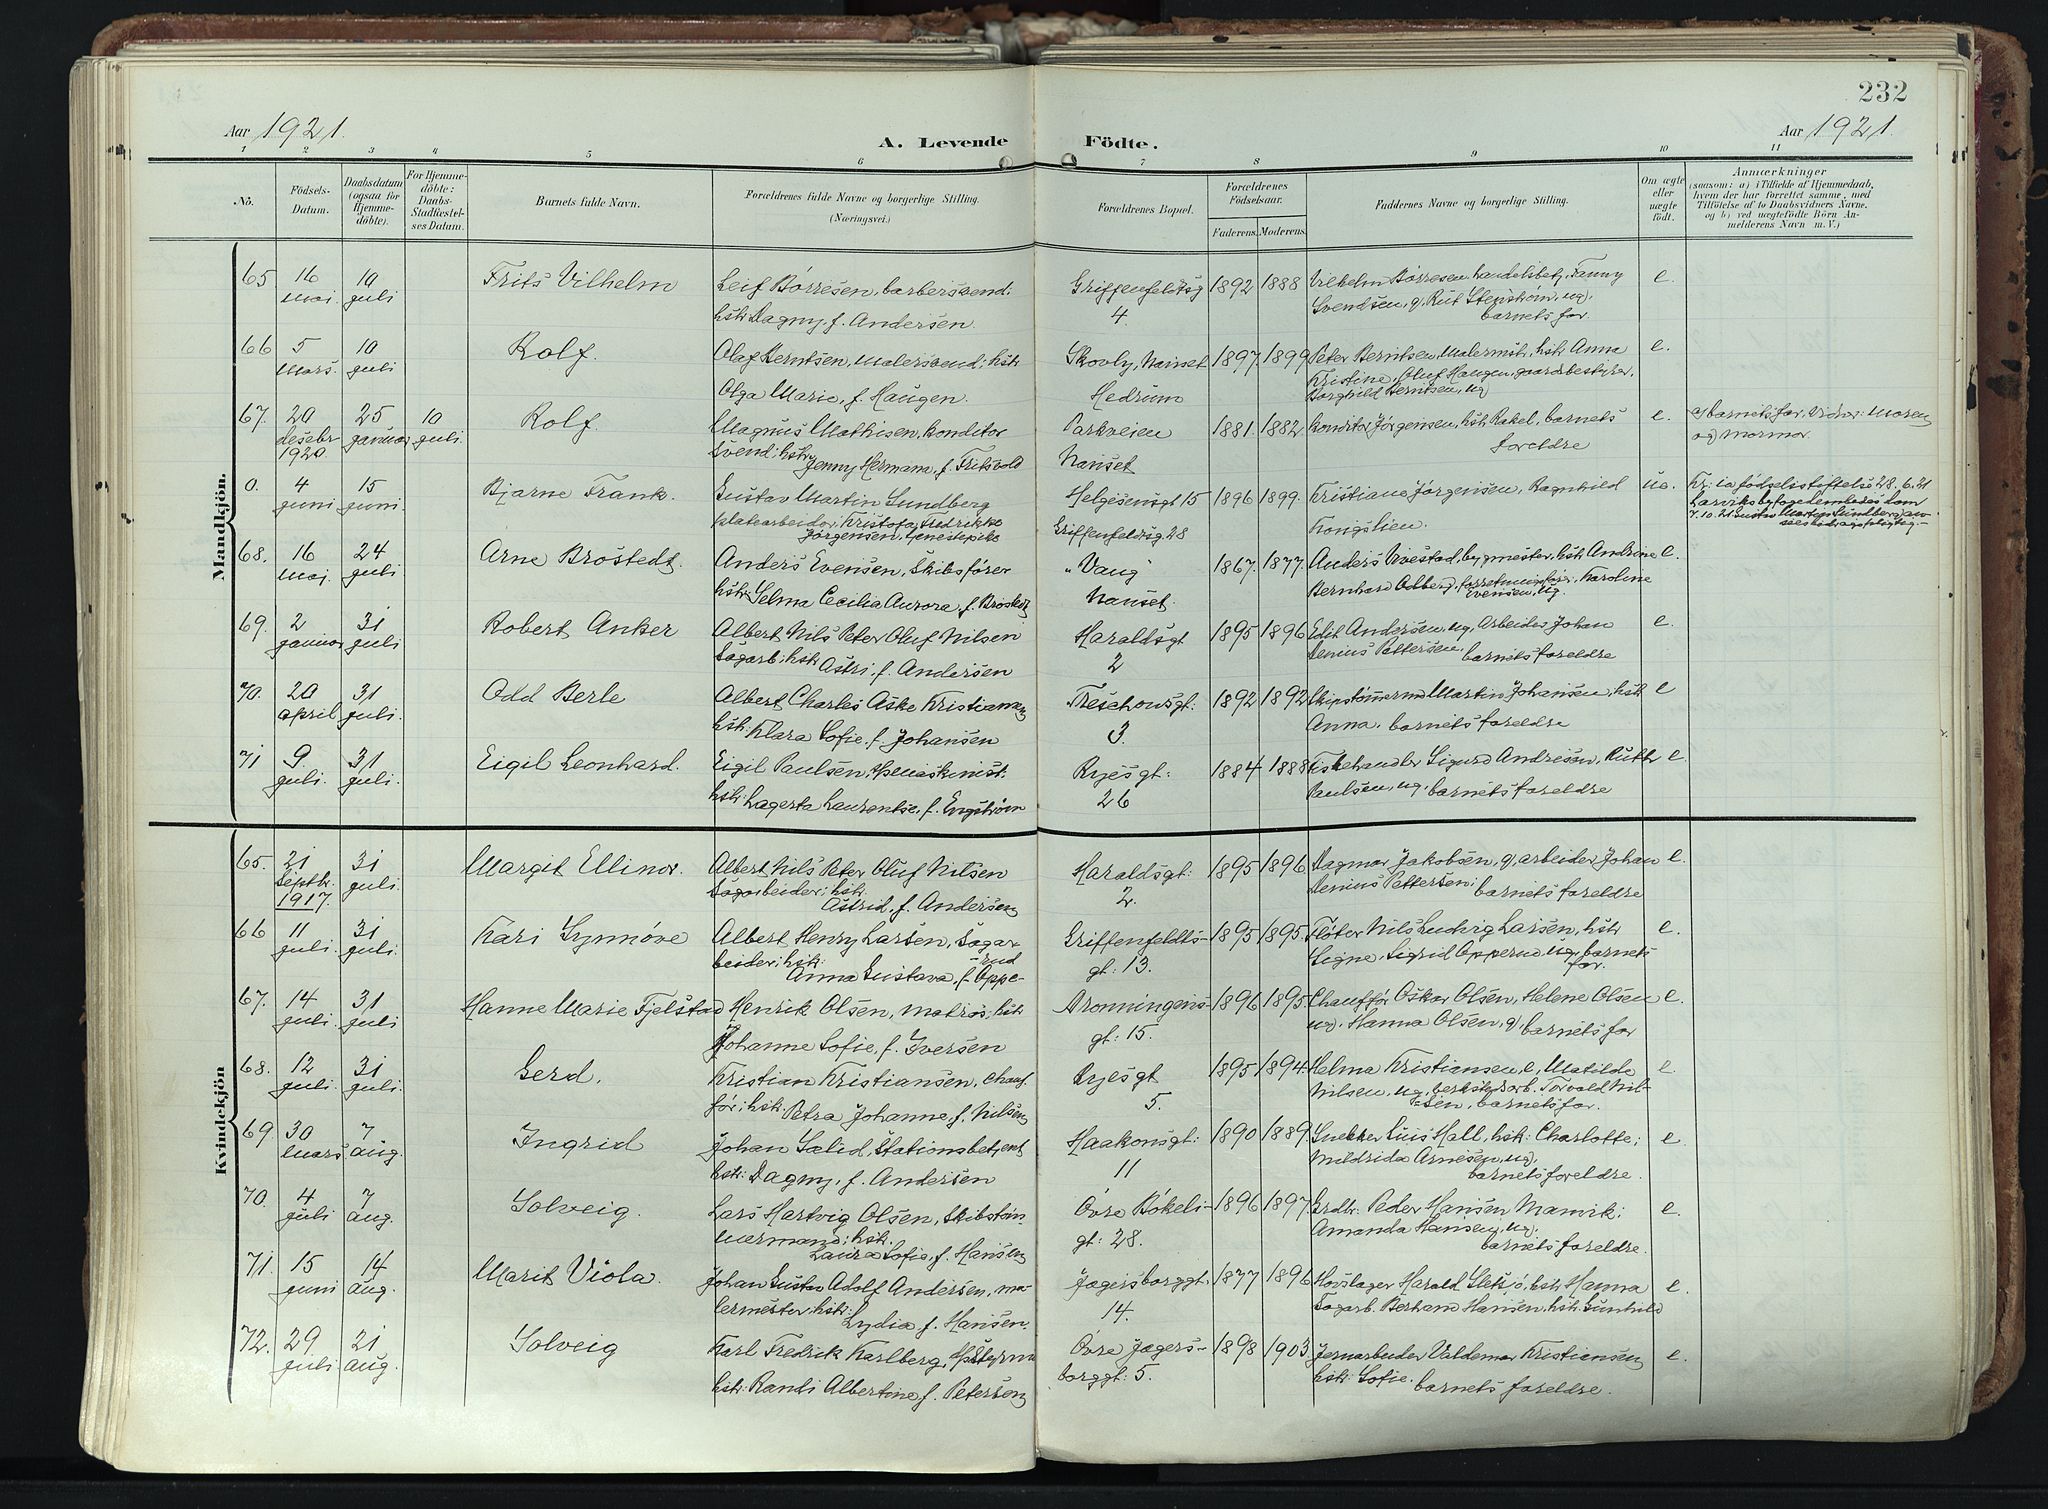 232
Aar 1921.
A. Levende
Födte.
Aar 1921.
1 2 3 4 5 6 7 8 9 10 11
No.
Födsels-Datum.
Daabsdatum (ogsaa for Hjemme-döbte).
For Hjemme-döbte: Daabs-Stadfæstel-ses Datum.
Barnets fulde Navn.
Forældrenes fulde Navne og borgerlige Stilling. (Næringsvei.)
Forældrenes Bopæl.
Forældrenes Födselsaar.
Faderens. Moderens.
Faddernes Navne og borgerlige Stilling.
Om ægte eller uægte født.
Anmærkninger
(saasom: a) i Tilfælde af Hjemmedaab,
hvem der har forrettet samme, med
Tilföielse af to Daabsvidners Navne.
og b) ved uægtefödte Börn An-
melderens Navn m. V.)
Mandkjön.
65 16 mai. 10 juli Frits Vilhelm
Leif Børresen, barbersvend;
hstr Dagny, f. Andersen.
Griffenfeldtsg 4. 1892 1888
Vilhelm Børresen, handelsbetj, Fanny
Svendsen, g, Rut Stenstrøm, ug,
barnets far. e.
66 5 mars. 10 juli Rolf.
Olaf Berntsen, malersvend; hstr
Olga Marie, f. Haugen.
Skovly, Nanset Hedrum 1897. 1899
Peter Berntsen, malermstr, hstr Anna
Kristine, Oluf Haugen, gaardsbestyrer,
Borghild Berntsen, ug e.
67. 20 desebr 1920. 25 januar 10 juli. Rolf.
Magnus Mathisen, konditor
svend; hstr Jenny Hermana, f. Fritsvold
Parkveien Nanset 1881. 1882
konditor Jørgensen, hstr Rakel, barnets
foreldre e.
a) barnets far, vidner: moren
og mormor.
0. 4 juni 15 juni. Bjarne Frank.
Gustav Martin Sundberg
platearbeider, Kristofa Fredrikke
Jørgensen, tjenestepike
Helgesensgt 15 Griffenfeldsg. 28 1896 1899.
Kristiane Jørgensen, Ragnhild
Kongslien. ue.
Kr:ia fødselsstiftelse 28.6.21
68. 16 mai 24 juli Arne Brostedt.
Anders Evensen, Skibsfører
hstr Selma Cecilia Aurora, f.
"Vang" Nanset. 1867. 1877.
bygmester, hstr Andrine
Bernhard Karoline
Evensen, ug. e.
69. 2 januar 31 juli Robert Anker
Albert Nils Peter Oluf Nilsen
Sagarb; hstr Astri, f. Andersen
Haraldsgt 2 1895 1896
Edit Andersen, ug, Arbeider Johan
Denius Pettersen, barnets foreldre e.
70. 20 april 31 juli. Odd Berle
Albert Charles Aske Kristiansen
hstr Klara Sofie, f. Johansen
Treschowsgt: 3. 1892 1892
Skipstømmermd Martin Johansen, hstr
Anna, barnets foreldre e
71 9. juli. 31 juli. Eigil Leonhard.
Eigil Paulsen,
hstr: Lagerta Laurentse, f. Engstrøm
Ryesgt: 26 1884 1888
Fiskehandler Sigurd Andresen, Ruth
Paulsen, ug, barnets foreldre e.
Kvindekjön
65. 21 septbr. 1917. 31 juli. Margit Ellinor.
Albert Nils Peter Oluf Nilsen
Sagarbeider; hstr.
Astrid, f. Andersen
Haraldsgt: 2. 1895 1896
Dagmar Jakobsen, g, arbeider Johan
Denius Pettersen; barnets foreldre e.
66 11 juli. 31 juli. Kari Synnøve
Albert Henry Larsen, Sagar-
beider; hstr: Anna Gustava, f. Oppe-rud
Griffenfeldts-gt: 13. 1895 1895.
Fløter Nils Ludvig Larsen, hstr
Signe, Sigrid Opperud, ug, barnets
far. e.
67. 14 juli. 31 juli Hanne Marie Fjelstad
Henrik Olsen, matros; hstr
Johanne Sofie, f. Iversen
Dronningens-gt: 15. 1896 1895.
Chauffør Oskar Olsen, Helene Olsen
ug, Hanna Olsen, g, barnets far e.
68. 12 juli. 31 juli. Gerd.
Kristian Kristiansen, chauf-
før; hstr: Petra Johanne, f. Nilsen
Ryesgt 5. 1895 1894.
Helma Kristiansen, e, Matilde
Nilsen, ug, Torvald Nil-
sen, barnets far. e.
69 30 mars 7 aug. Ingrid
Johan Salid, Stationsbetjent
hstr: Dagny, f. Andersen
Haakonsgt: 11 1890 1889.
Snekker Luis Hall, hstr: Charlotte;
Mildrida Arnesen, ug,
barnets foreldre. e
70. 4 juli 7 aug. Solveig.
Lars Hartvig Olsen, Skibstøm-
mermand; hstr.
Laura Sofie, f. Hansen
Øvre Bøkeli-gt: 28. 1896 1897.
Grdbr. Peder Hansen Mamvik;
Amanda Hansen, ug;
barnets foreldre. e.
71. 15 juni 14 aug. Marit Viola.
Johan Gustav Adolf Andersen, ma-
lermester; hstr:
Lydia f. Hansen.
Jægersborggt. 14. 1877 1896
Hovslager Harald hstr Hanna
Sagarb. Hansen, hstr Gunhild e.
72. 29 juli. 21 aug. Solveig
Karl Fredrik Karlberg,
hstr: Randi Albertine f. Petersen
Øvre Jægers-borggt: 5. 1898 1903
Jernarbeider Valdemar Kristiansen
hstr: Sofie. barnets foreldre. e.